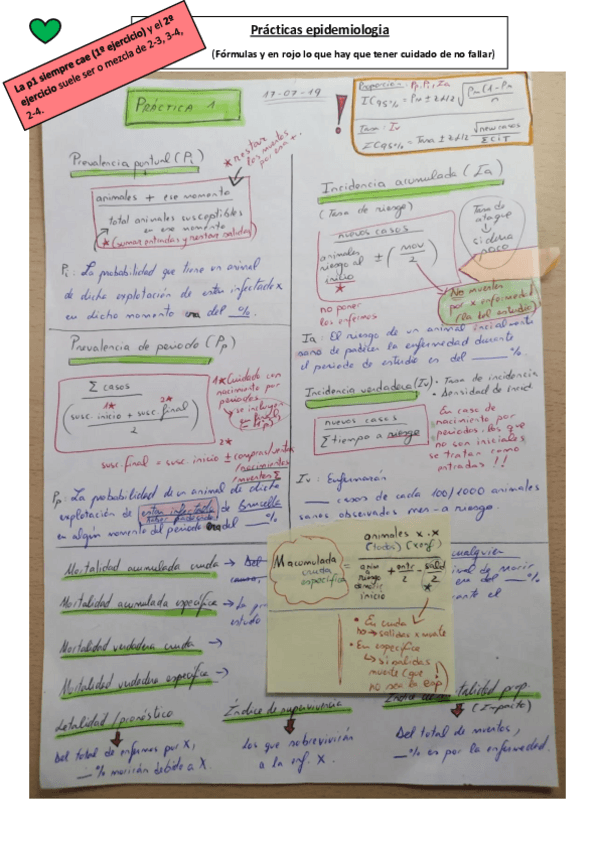 Prácticas epidemiologia
(Fórmulas y en rojo lo que hay que tener cuidado de no fallar)
La p1 siempre cae (1º ejercicio) y el 2º
ejercicio suele ser o mezcla de 2-3, 3-4,
2-4.
PRÁCTICA 1
17-07-19
!
Proporción - Pi, Pp, Ia
IC95% =
Tasa - Iv
IC95% = Tasa ±
new casos
Prevalencia puntual (Pi)
* restar
los muertos
por esa +.
animales + ese momento
total animales susceptibles
en ese momento
* (sumar entradas y restar salidas)
Pi: La probabilidad que tiene un animal
de dicha explotación de estar infectado x
en dicho momento del __%.
Incidencia acumulada (Ia)
(Tasa de riesgo)
Tasa de
ataque
↓
si dura
poco
nuevos casos
animales
riesgo al ± (mov/2)
inicio
*
no poner
los enfermos
No muertes
por x enfermedad
(la del estudio)
Ia: El riesgo de un animal inicialmente
sano de padecer la enfermedad durante
el periodo de estudio es del ____%.
Prevalencia de periodo (Pp)
Σ casos
1* 2*
(susc. inicio + susc. final)
2
1* Cuidado con
nacimiento por
periodos
↳ se incluyen
2*
susc. final = susc. inicio ± compras/ventas
/nacimientos
/muertes Σ
Pp: La probabilidad de un animal de dicha
explotación de estar infectada de Brucella
en algún momento del periodo del ___%
Incidencia verdadera (Iv) • Tasa de incidencia
• Densidad de incid
nuevos casos
Σ tiempo a riesgo
En caso de
nacimiento por
periodos, los que
no son iniciales
se tratan como
entradas !!
Iv: Enfermarán
___ casos de cada 100/1000 animales
sanos observados mes-a riesgo.
Mortalidad acumulada cruda →
Mortalidad acumulada específica →
estudio
Mortalidad verdadera cruda →
Mortalidad verdadera específica →
M acumulada
cruda
específica
=
animales x.x
(todos) (x enf)
anim
a
riesgo
inicio
+ entr/2 - salid/2
*
• En cruda
no → salidas x muerte
• En específica
↳ si salidas
muerte (que
no sea la enf)
cualquier
de morir
del __%
el
Letalidad / pronóstico
↓
Del total de enfermos por X,
__% morirán debido a X.
Índice de supervivencia
↓
Los que sobrevivirán
a la enf. X.
Índice de mortalidad prop.
↓ (I-pacto)
Del total de muertos,
__% es por la enfermedad.